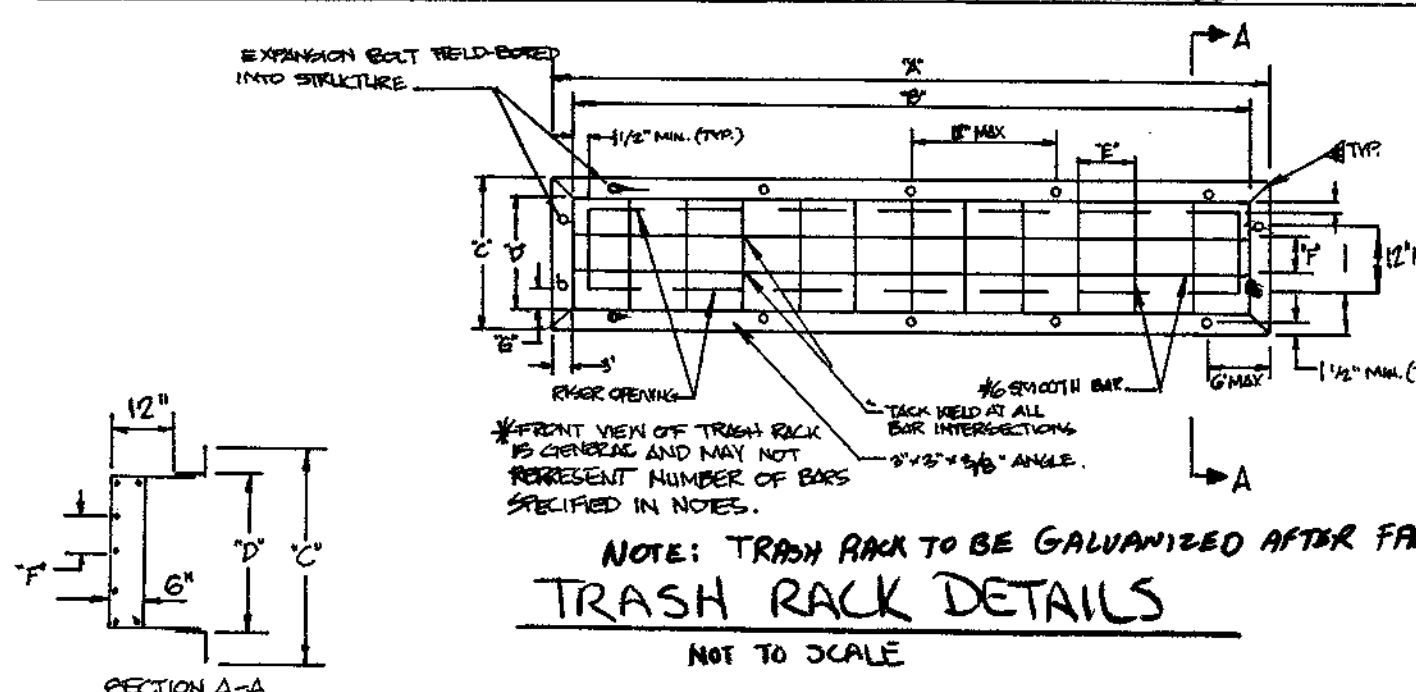 EXPANSION BOLT FIELD-BORED
INTO STRUCTURE
A
"A"
"B"
1 1/2" MIN. (TYP.)
MAX
"E"
TYP.
"C"
"D"
"F"
12"
"G"
3"
RISER OPENING
#6 SMOOTH BAR
6" MAX
1 1/2" MIN.
TACK WELD AT ALL
BAR INTERSECTIONS
3"x3"x3/8" ANGLE.
*FRONT VIEW OF TRASH RACK
IS GENERAL AND MAY NOT
REPRESENT NUMBER OF BARS
SPECIFIED IN NOTES.
A
12"
"F"
6"
"D"
"C"
SECTION A-A
NOTE: TRASH RACK TO BE GALVANIZED AFTER
TRASH RACK DETAILS
NOT TO SCALE